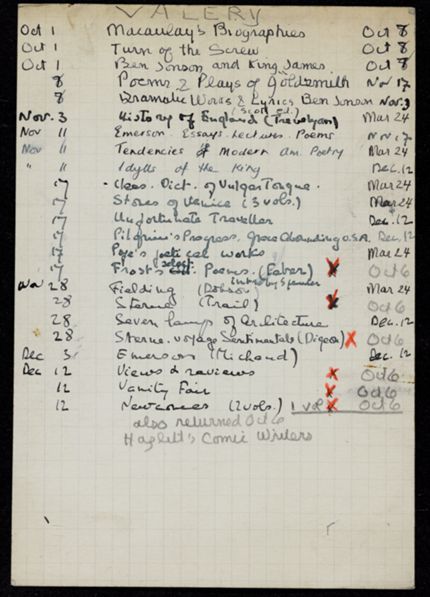 VALERY
Oct 1 Macaulay's Biographies Oct 8
Oct 1 Turn of the Screw Oct 8
Oct 1 Ben Jonson and King James Oct 8
8 Poems & Plays of Goldsmith Nov 17
8 Dramatic Works & Lyrics Ben Jonson Nov. 3
Nov. 3 History of England (Trevelyan) Mar 24
Nov 11 Emerson. Essays. Lectures. Poems Nov 17
Nov 11 Tendencies of Modern Am. Poetry Mar 24
" 11 Idylls of the King Dec. 12
17 Class. Dict. of Vulgar Tongue. Mar 24
17 Stones of Venice (3 vols.) Mar 24
17 Unfortunate Traveller Dec. 12
17 Pilgrim's Progress. Grace Abounding Dec. 12
17 Pope's poetical works Mar 24
17 Frost's select Poems. (Faber) x Oct 6
Nov 28 Fielding (Dobson) Mar 24
28 Sterne (Trail) x Oct 6
28 Seven Lamps of Architecture Dec. 12
28 Sterne. Voyage Sentimentale x Oct 6
Dec 3 Emerson (Michaud) Dec. 12
Dec 12 Views & reviews x Oct 6
12 Vanity Fair x Oct 6
12 Newcomes (2 vols.) 1 vol x Oct 6
also returned Oct 6
Hazlitt's Comic Writers